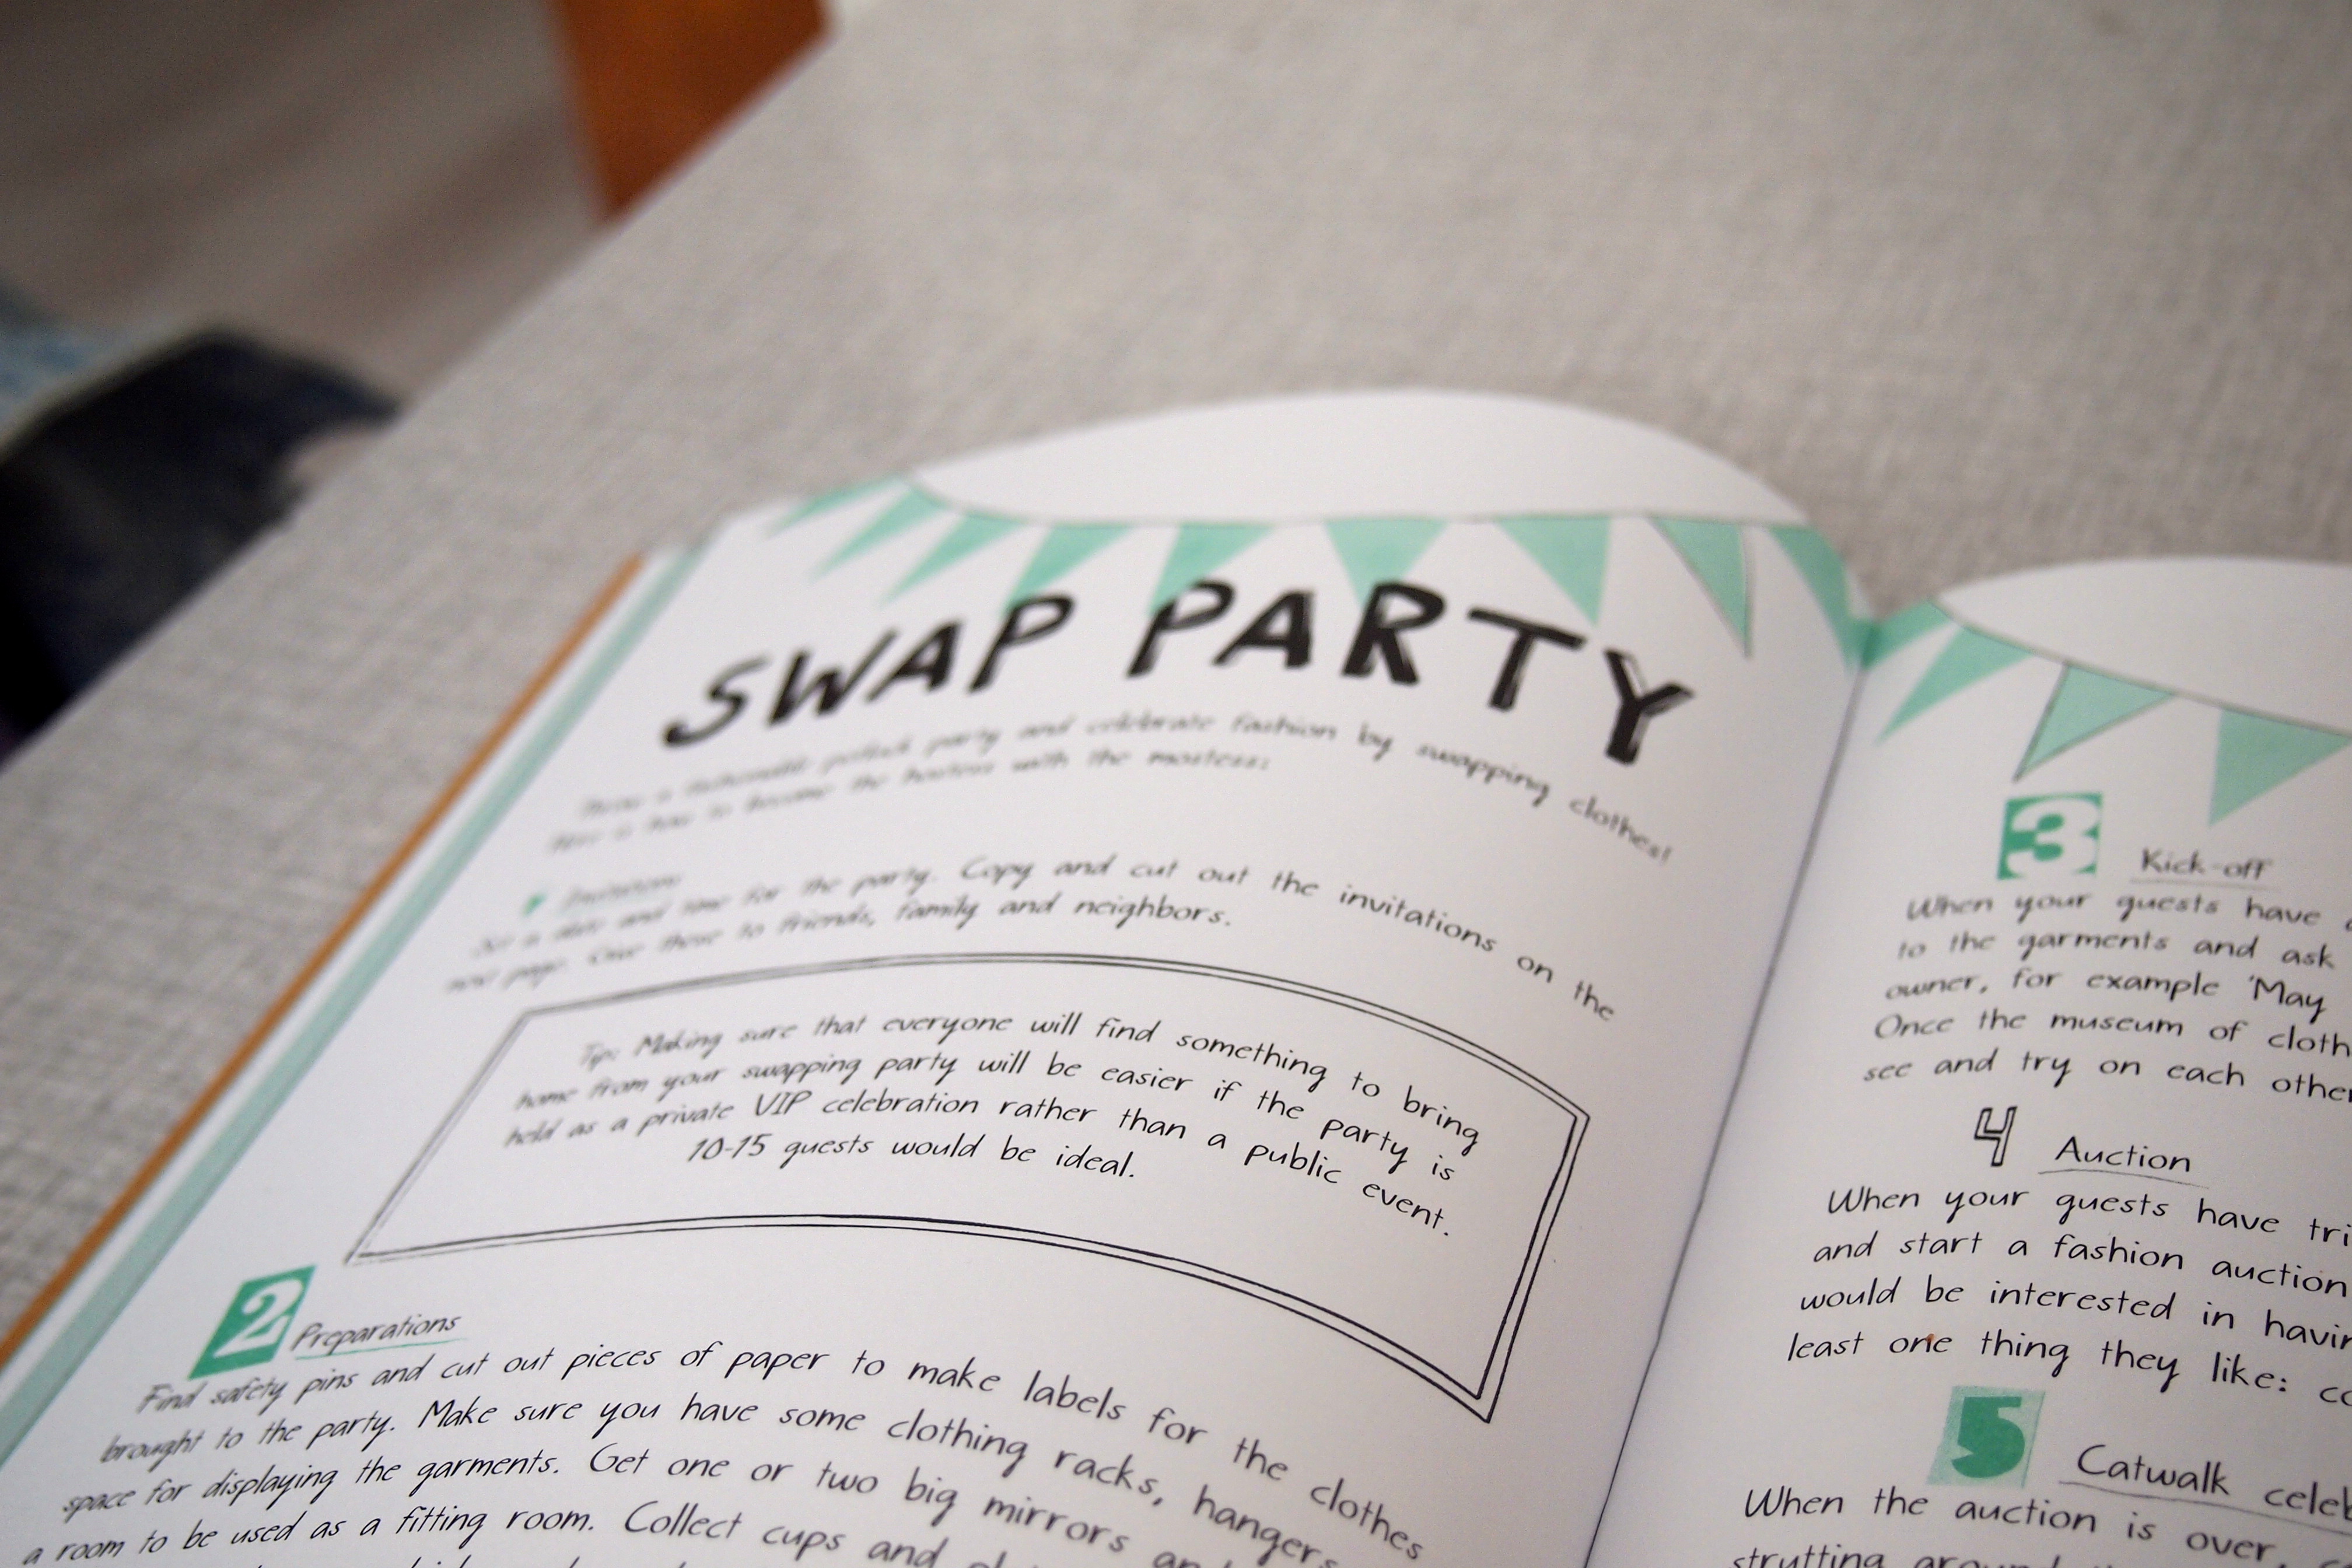 SWAP PARTY
Throw a fashionable potluck party and celebrate fashion by swapping clothes!
Here is how to become the hostess with the mostess:
Invitations
Set a date and time for the party. Copy and cut out the invitations on the
next page. Give these to friends, family and neighbors.
Tip: Making sure that everyone will find something to bring
home from your swapping party will be easier if the party is
held as a private VIP celebration rather than a public event.
10-15 guests would be ideal.
2 Preparations
Find safety pins and cut out pieces of paper to make labels for the clothes
brought to the party. Make sure you have some clothing racks, hangers
space for displaying the garments. Get one or two big mirrors
a room to be used as a fitting room. Collect cups and
3 Kick-off
When your guests have
to the garments and ask
owner, for example 'May
Once the museum of cloth
see and try on each other
4 Auction
When your guests have tri
and start a fashion auction
would be interested in havin
least one thing they like: co
5 Catwalk celeb
When the auction is over
strutting around